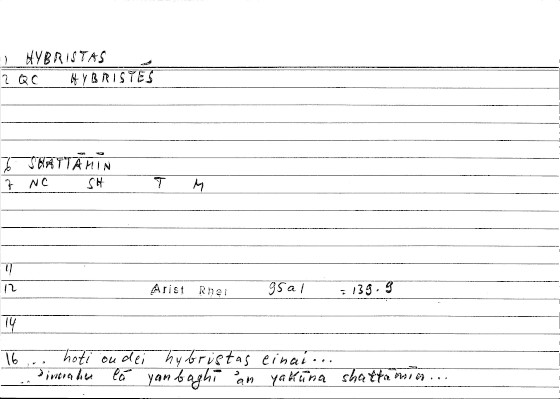 1 HYBRISTAS
2 QC HYBRISTĒS
6 SHATTĀMĪN
7 NC SH T M
11
12 Arist Rhet 95a1 = 139.9
14
16 ... hoti oudei hybristas einai...
...'innahu lā yanbaghī 'an yakūna shattāmīn...